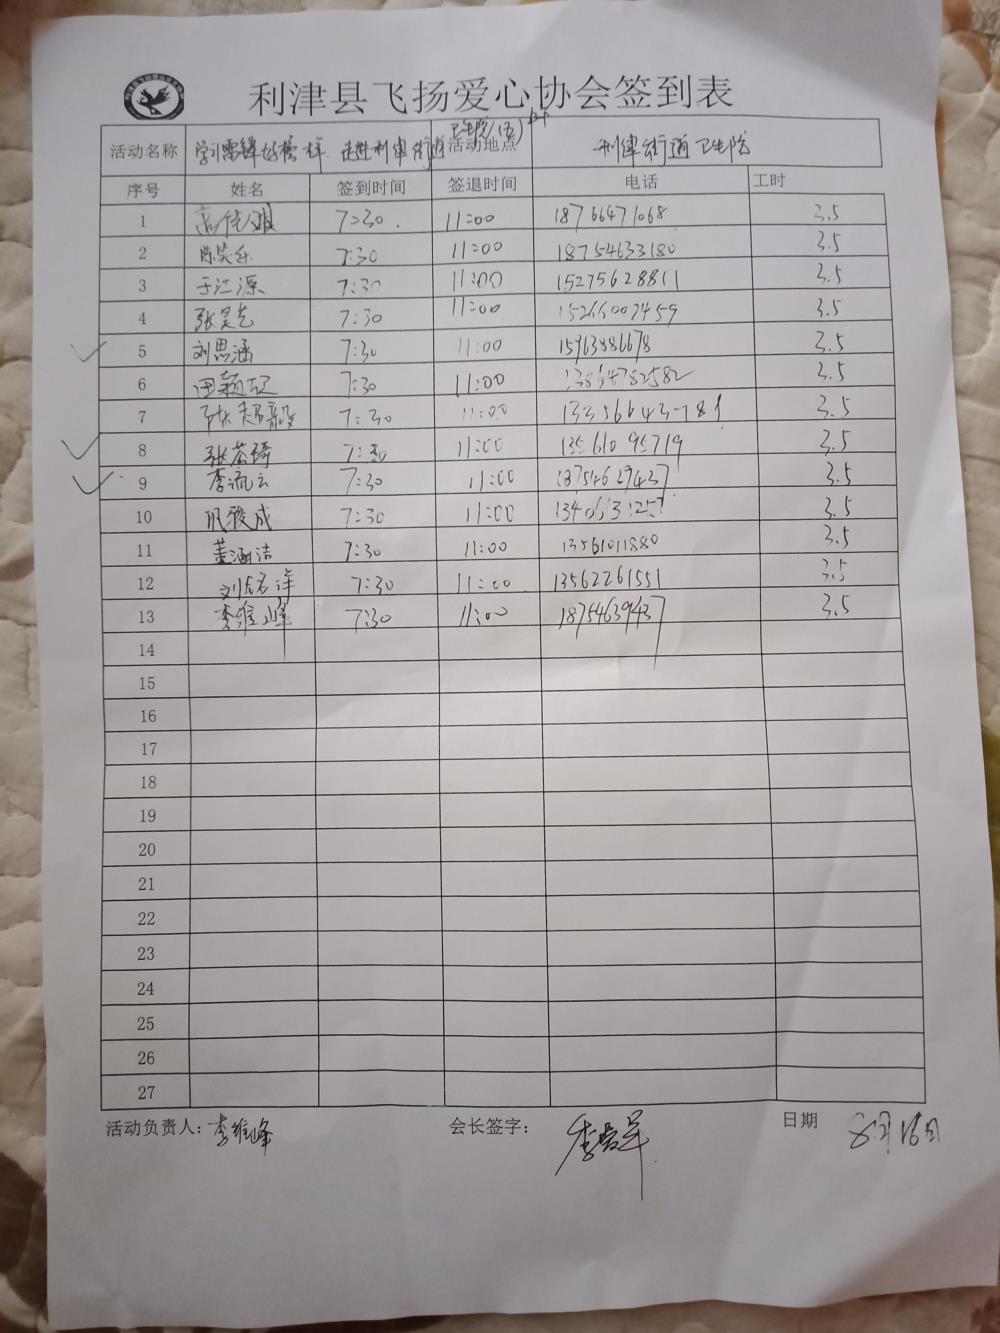 利津县飞扬爱心协会签到表
活动名称 学习雷锋好榜样 走进利津街道卫生院(五) 活动地点 利津街道卫生院
序号 姓名 签到时间 签退时间 电话 工时
1 7:30 11:00 18766471068 3.5
2 7:30 11:00 18754633180 3.5
3 于江源 7:30 11:00 15275628811 3.5
4 7:30 11:00 15266002459 3.5
5 刘思涵 7:30 11:00 15963886678 3.5
6 7:30 11:00 13864782582 3.5
7 张超毅 7:30 11:00 3.5
8 7:30 11:00 13561095719 3.5
9 李流云 7:30 11:00 18754629437 3.5
10 7:30 11:00 3.5
11 董涵洁 7:30 11:00 13561011880 3.5
12 刘铭洋 7:30 11:00 13562261551 3.5
13 李维峰 7:30 11:00 18754639437 3.5
14
15
16
17
18
19
20
21
22
23
24
25
26
27
活动负责人: 李维峰 会长签字: 日期 8月16日